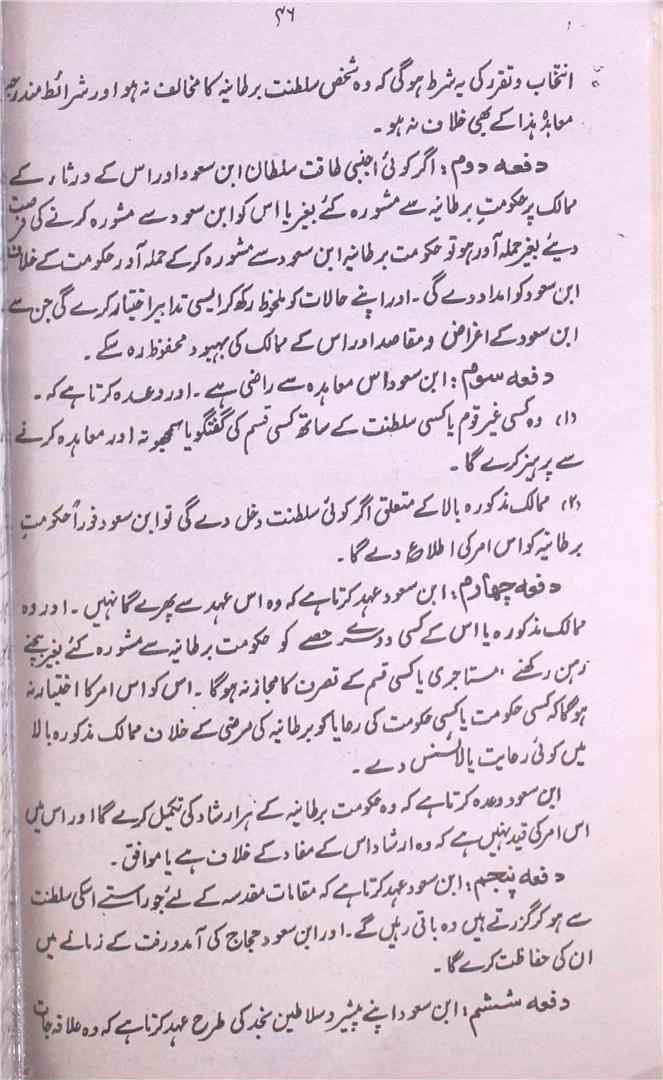 ۴۶
انتخاب و تقرر کی یہ شرط ہوگی کہ وہ شخص سلطنت برطانیہ کا مخالف نہ ہو اور شرائط مندرجہ
معاہدہ ہذا کے بھی خلاف نہ ہو۔
دفعہ دوم: اگر کوئی اجنبی طاقت سلطان ابن سعود اور اس کے ورثاء کے
ممالک پر حکومتِ برطانیہ سے مشورہ کئے بغیر یا اس کو ابن سعود سے مشورہ کرنے کی فرصت
دیئے بغیر حملہ آور ہو تو حکومت برطانیہ ابن سعود سے مشورہ کر کے حملہ آور حکومت کے خلاف
ابن سعود کو امداد دے گی۔ اور اپنے حالات کو ملحوظ رکھ کر ایسی تدابیر اختیار کرے گی جن سے
ابن سعود کے اغراض و مقاصد اور اس کے ممالک کی بہبود محفوظ رہ سکے۔
دفعہ سوم: ابن سعود اس معاہدہ سے راضی ہے۔ اور وعدہ کرتا ہے کہ۔
(۱) وہ کسی غیر قوم یا کسی سلطنت کے ساتھ کسی قسم کی گفتگو یا سمجھوتہ اور معاہدہ کرنے
سے پرہیز کرے گا۔
(۲) ممالک مذکورہ بالا کے متعلق اگر کوئی سلطنت دخل دے گی تو ابن سعود فوراً حکومتِ
برطانیہ کو اس امر کی اطلاع دے گا۔
دفعہ چہارم: ابن سعود عہد کرتا ہے کہ وہ اس عہد سے پھرے گا نہیں۔ اور وہ
ممالک مذکورہ یا اس کے کسی دوسرے حصے کو حکومت برطانیہ سے مشورہ کئے بغیر بیچنے
رہن رکھنے، مستاجری یا کسی قسم کے تصرف کا مجاز نہ ہوگا۔ اس کو اس امر کا اختیار نہ
ہوگا کہ کسی حکومت یا کسی حکومت کی رعایا کو برطانیہ کی مرضی کے خلاف ممالک مذکورہ بالا
میں کوئی رعایت یا لائسنس دے۔
ابن سعود وعدہ کرتا ہے کہ وہ حکومت برطانیہ کے ہر ارشاد کی تکمیل کرے گا اور اس میں
اس امر کی قید نہیں ہے کہ وہ ارشاد اس کے مفاد کے خلاف ہے یا موافق۔
دفعہ پنجم: ابن سعود عہد کرتا ہے کہ مقامات مقدسہ کے لئے جو راستے اسکی سلطنت
سے ہو کر گزرتے ہیں وہ باقی رہیں گے۔ اور ابن سعود حجاج کی آمد و رفت کے زمانے میں
ان کی حفاظت کرے گا۔
دفعہ ششم: ابن سعود اپنے پیشرو سلاطین نجد کی طرح عہد کرتا ہے کہ وہ علاقہ جات